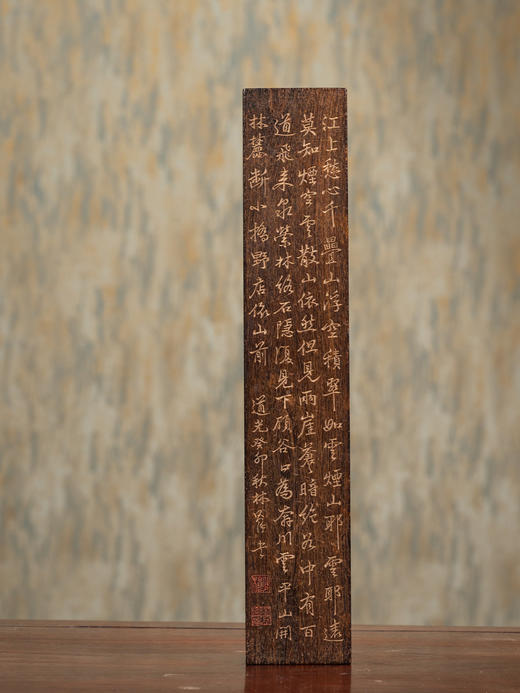 江上愁心千疊山浮空積翠如雲煙山耶雲耶遠
莫知煙空雲散山依然但見兩崖蒼暗絕谷中有百
道飛來泉縈林絡石隱復見下谷口為奔川雲平山開
林麓斷小橋野店依山前
道光癸卯秋林